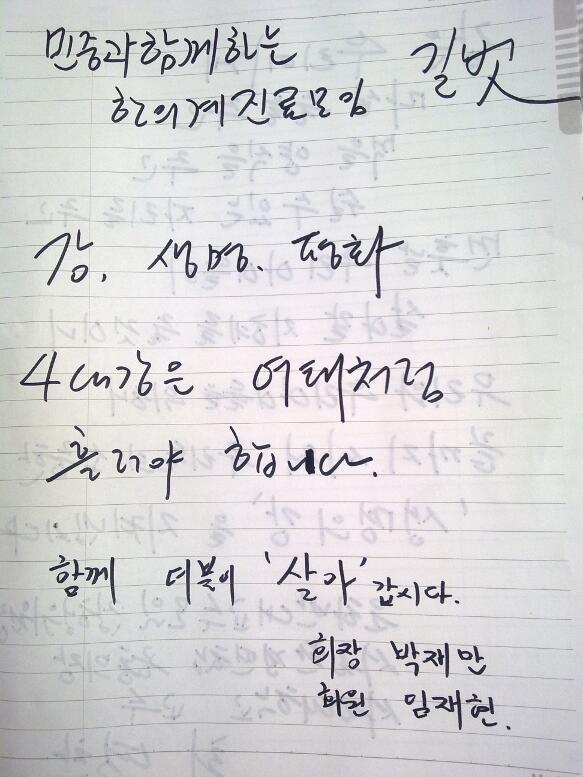 민중과 함께하는 길벗
한의계 진료모임
강, 생명, 평화
4대강은 여태처럼
흘러야 합니다.
함께 더불어 '살아' 갑시다.
회장 박재만
회원 임재현.